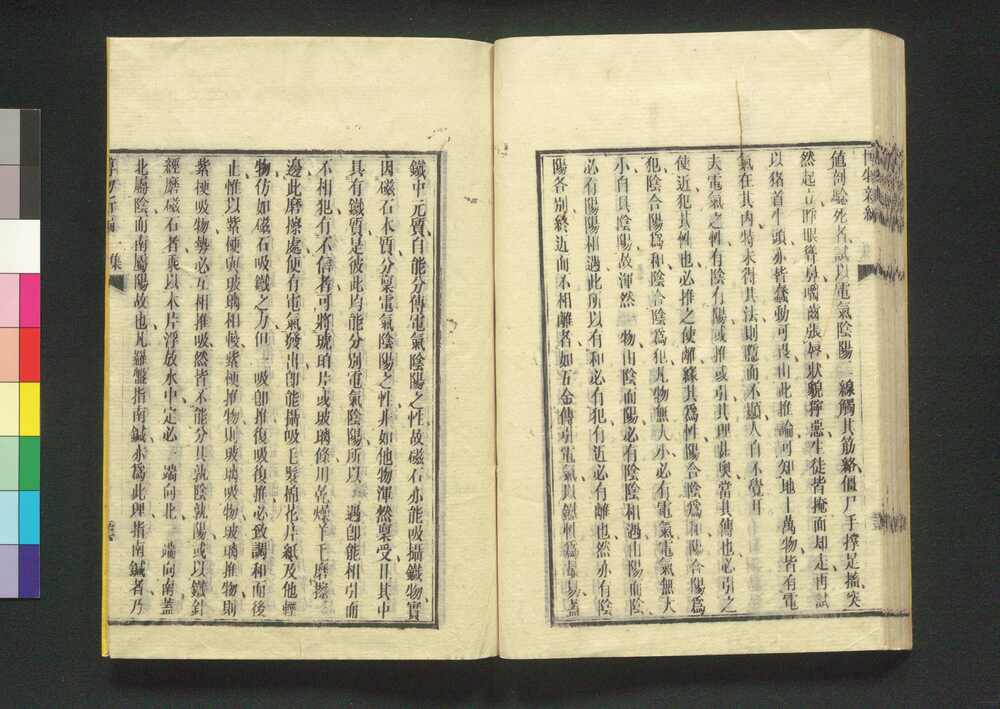 博物新編
值剖驗死者試以電氣陰陽二線觸其筋絡僵尸手撑足搐突
然起立眸眼聳鼻嚼齒張唇狀貌獰惡生徒皆掩面却走再試
以豬首牛頭亦皆蠢動可畏由此推論可知地上萬物皆有電
氣在其內特未得其法則隱而不顯人自不覺耳
夫電氣之性有陰有陽或推或引其理甚奧當其傳也必引之
使近犯其性也必推之使離緣其為性陽合陰為和陽合陽為
犯陰合陽為和陰合陰為犯凡物無大小必有電氣電氣無大
小自具陰陽故渾然一物由陰而陽必有陰陰和遇由陽而陰
必有陽陽相遇此所以有和必有犯有近必有離也然亦有陰
陽各別終近而不相離者如五金傳引電氣以鐵刺為最易蓋
鐵中元質自能分傳電氣陰陽之性故磁石亦能吸攝鐵物實
因磁石本質分稟電氣陰陽之性非如他物渾然稟受且其中
具有鐵質是彼此均能分別電氣陰陽所以一遇卽能相引而
不相犯有不信者可將琥珀片或玻璃條用乾燥羊毛磨擦一
邊此磨擦處便有電氣發出卽能攝吸毛髮棉花片紙及他輕
物仿如磁石吸鐵之力但一吸卽推復吸復推必致調和而後
止惟以紫梗與玻璃相較紫梗推物則玻璃吸物玻璃推物則
紫梗吸物勢必互相推吸然皆不能分其孰陰孰陽或以鐵針
經磨磁石者乘以木片浮放水中定必一端向北一端向南蓋
北屬陰而南屬陽故也凡羅盤指南鍼亦為此理指南鍼者乃
一集